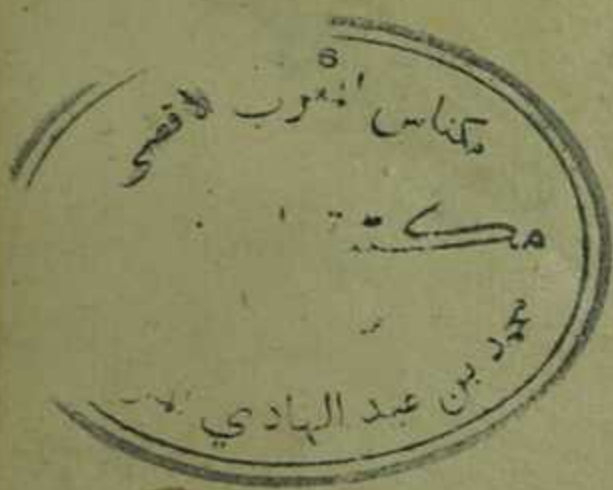 مكناس المغرب الاقصى
مكتبة
محمد بن عبد الهادي